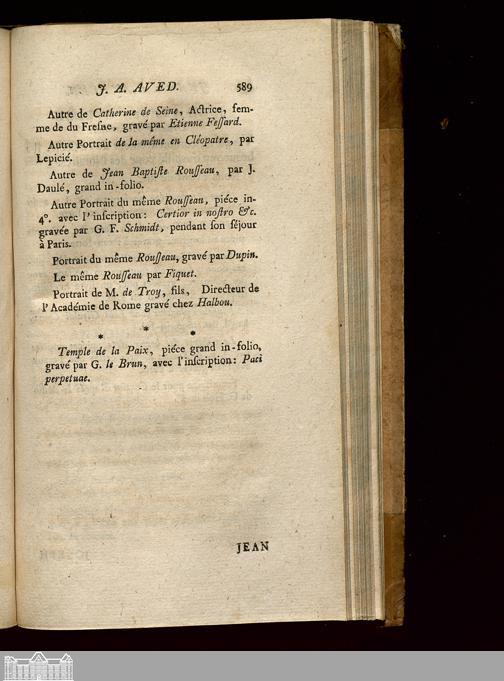 J. A. AVED. 589
Autre de Catherine de Seine, Actrice, fem-
me de du Freſne, gravé par Etienne Feſſard.
Autre Portrait de la même en Cléopatre, par
Lepicié.
Autre de Jean Baptiſte Rouſſeau, par J.
Daulé, grand in-folio.
Autre Portrait du même Rouſſeau, piéce in-
4°. avec l'inſcription: Certior in noſtro &c.
gravée par G. F. Schmidt, pendant ſon ſéjour
à Paris.
Portrait du même Rouſſeau, gravé par Dupin.
Le même Rouſſeau par Fiquet.
Portrait de M. de Troy, fils, Directeur de
l'Académie de Rome gravé chez Halbou.
* * *
Temple de la Paix, piéce grand in-folio,
gravé par G. le Brun, avec l'inſcription: Paci
perpetuae.
JEAN